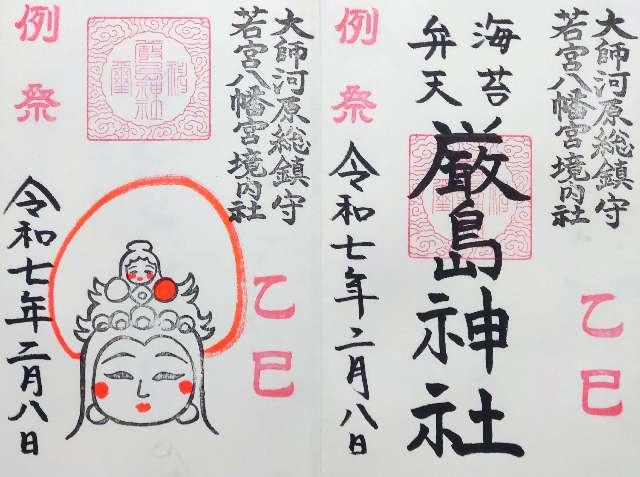 大師河原総鎮守
若宮八幡宮境内社
乙巳
海苔
弁天
厳島神社
令和七年二月八日
例祭
大師河原総鎮守
若宮八幡宮境内社
乙巳
厳島神社
令和七年二月八日
例祭